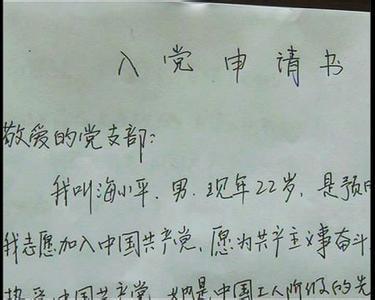 入党申请书
敬爱的党支部:
我叫海小平.男.现年22岁,是预
我志愿加入中国共产党,愿为共产主义事奋斗
热爱中国共产党 是中国工人阶级的先